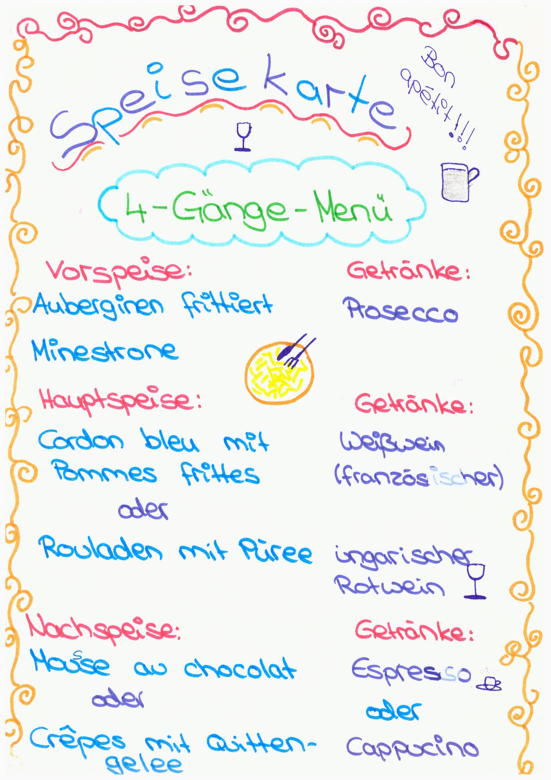 Speisekarte
Bon
apétit!!!
4-Gänge-Menü
Vorspeise: Getränke:
Auberginen frittiert Prosecco
Minestrone
Hauptspeise: Getränke:
Cordon bleu mit Weißwein
Pommes frittes (französischer)
oder
Rouladen mit Püree ungarischer
Rotwein
Nachspeise: Getränke:
Mousse au chocolat Espresso
oder oder
Crêpes mit Quitten- Cappucino
gelee